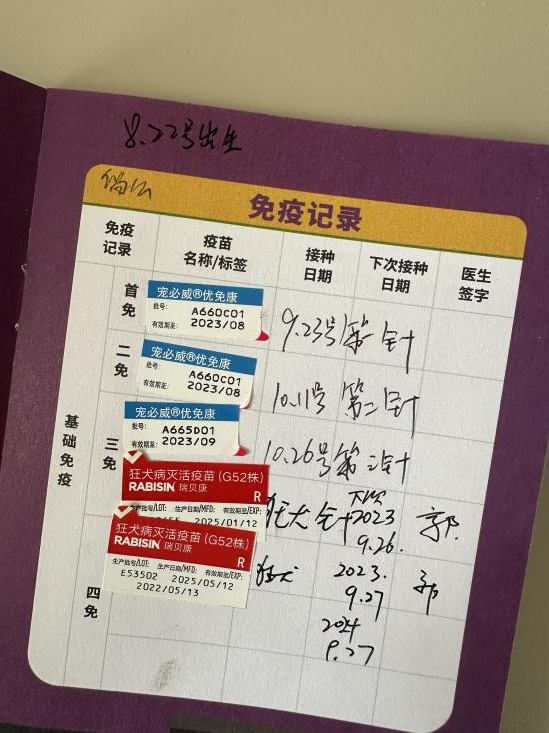 8.22号出生
免疫记录
免疫
记录
疫苗
名称/标签
接种
日期
下次接种
日期
医生
签字
基础免疫
首免
宠必威®优免康
批号:
A660C01
有效期至:
2023/08
9.23号第一针
二免
宠必威®优免康
批号:
A660C01
有效期至:
2023/08
10.11号 第二针
三免
宠必威®优免康
批号:
A665D01
有效期至:
2023/09
10.26号第三针
狂犬病灭活疫苗(G52株)
RABISIN 瑞贝康
R
生产批号/LOT: 生产日期/MFD: 有效期至/EXP:
2025/01/12
狂犬针
下次
2023
9.26.
郭
四免
狂犬病灭活疫苗(G52株)
RABISIN 瑞贝康
R
生产批号/LOT: 生产日期/MFD: 有效期至/EXP:
E53502 2025/05/12
2022/05/13
狂犬
2023.
9.27
郭
2024
9.27